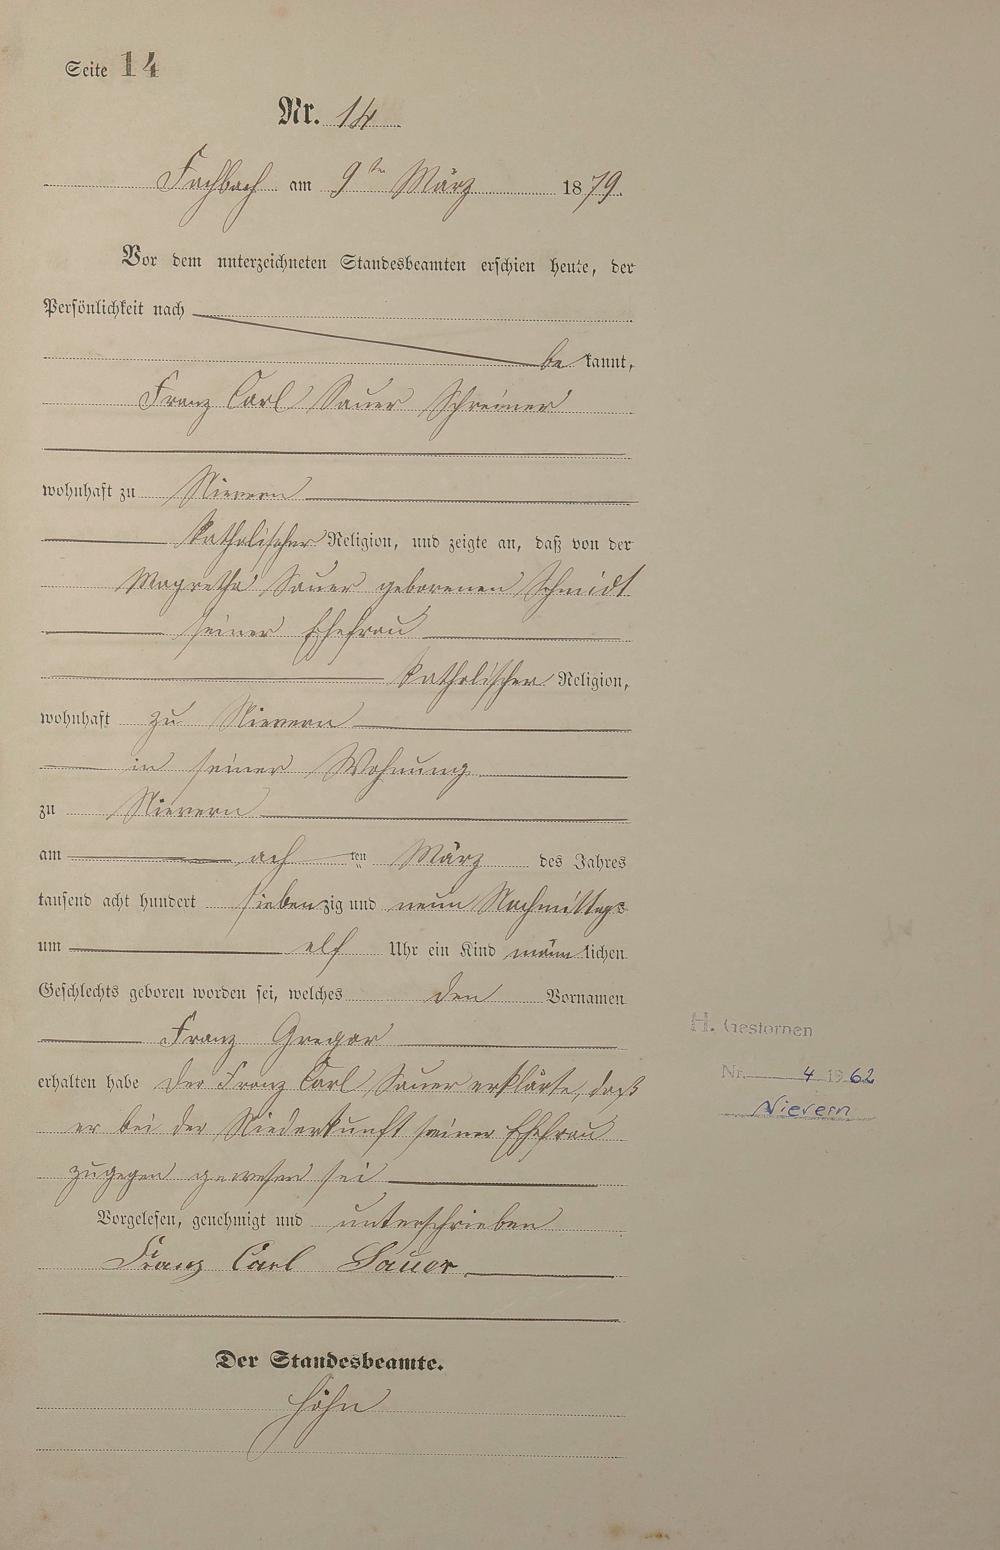 Seite 14
Nr. 14
Fachbach am 9ten März 1879.
Vor dem unterzeichneten Standesbeamten erschien heute, der
Persönlichkeit nach
be kannt,
Franz Carl Sauer Schreiner
wohnhaft zu Nievern
katholischer Religion, und zeigte an, daß von der
Magretha Sauer geborenen Schmidt
seiner Ehefrau
katholischer Religion,
wohnhaft zu Nievern
in seiner Wohnung
zu Nievern
am ach ten März des Jahres
tausend acht hundert siebenzig und neun Nachmittags
um elf Uhr ein Kind männlichen
Geschlechts geboren worden sei, welches den Vornamen
Franz Gregor
erhalten habe Der Franz Carl Sauer erklärte, daß
er bei der Niederkunft seiner Ehefrau
zugegen gewesen sei
Vorgelesen, genehmigt und unterschrieben
Franz Carl Sauer
Der Standesbeamte.
Höhn
H. Gestorben
Nr. 4 1962
Nievern